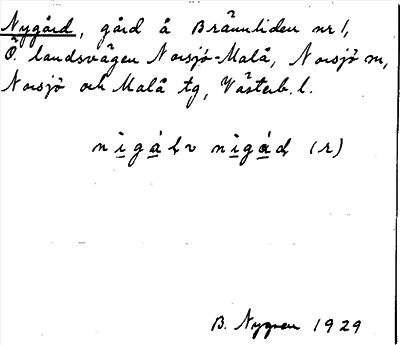 Nygård, gård å Brännliden nr 1,
Ö. landsvägen Norsjö-Malå, Norsjö sn,
Norsjö och Malå tg, Västerb. l.
(r)
B. Nygren 1929